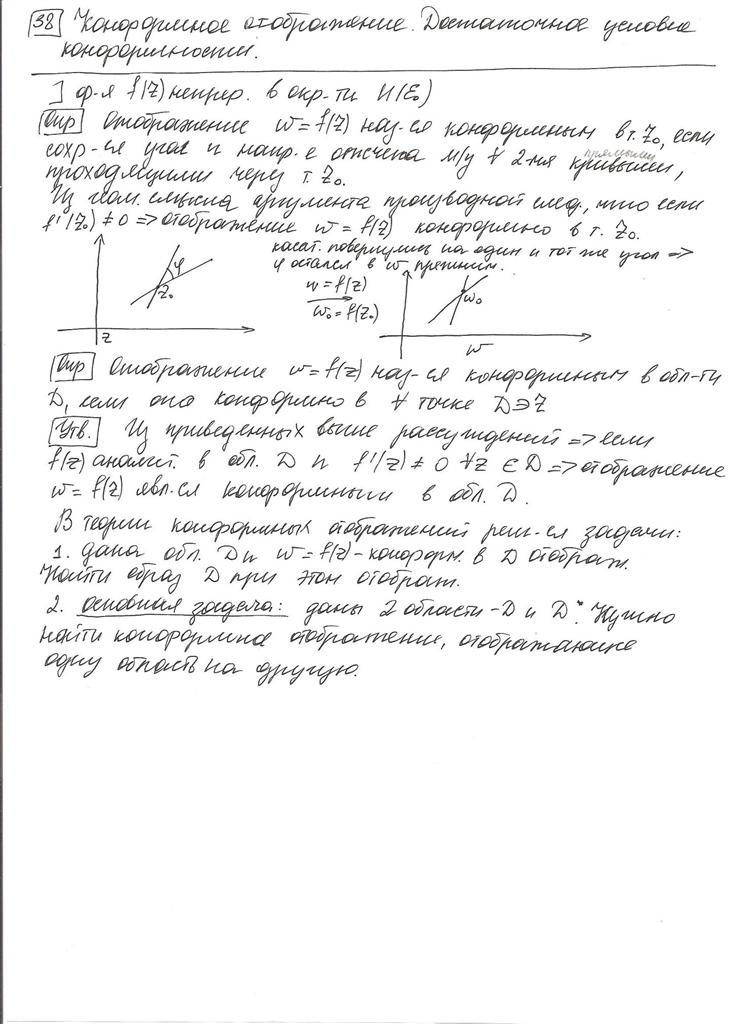 38 Конформное отображение. Достаточное условие
конформности.
] ф-я f(z) непрер. в окр-ти U(z₀)
Опр Отображение w = f(z) наз-ся конформным в т. z₀, если
сохр-ся угол и напр-е отсчета м/у ∀ 2-мя кривыми,
прямыми
проходящими через т. z₀.
Из геом. смысла аргумента производной след., что если
f'(z₀) ≠ 0 => отображение w = f(z) конформно в т. z₀.
касат. повернулись на один и тот же угол =>
φ остался в w прежним.
φ
z₀
z
w = f(z)
w₀ = f(z₀)
w₀
w
Опр Отображение w = f(z) наз-ся конформным в обл-ти
D, если оно конформно в ∀ точке D∋z
Утв. Из приведенных выше рассуждений => если
f(z) аналит. в обл. D и f'(z) ≠ 0 ∀z ∈ D => отображение
w = f(z) явл-ся конформным в обл. D.
В теории конформных отображений реш-ся задачи:
1. дана обл. D и w = f(z) - конформ. в D отображ.
Найти образ D при этом отображ.
2. основная задача: даны 2 области - D и D*. Нужно
найти конформное отображение, отображающее
одну область на другую.